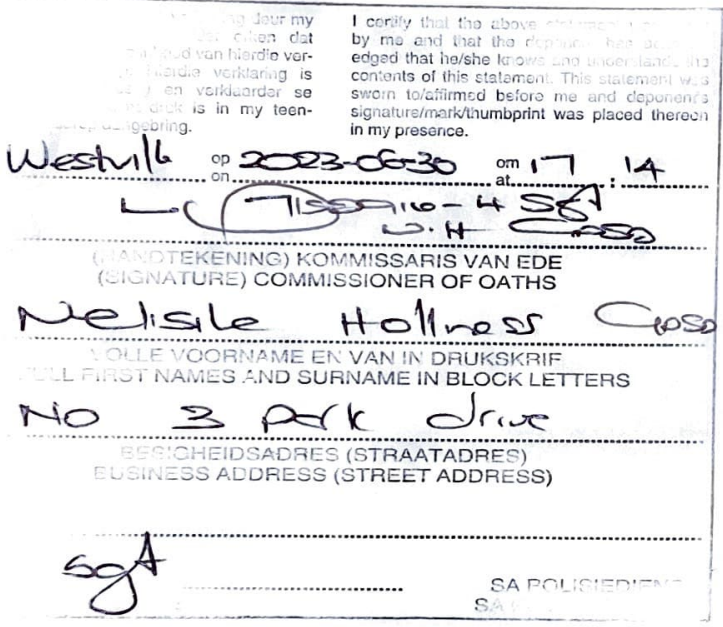 deur my
dat
van hierdie ver-
hierdie verklaring is
en verklaarder se
is in my teen-
I certify that the above
by me and that the
edged that he/she knows and understands the
contents of this statement. This statement was
sworn to/affirmed before me and deponent's
signature/mark/thumbprint was placed thereon
in my presence.
op on 2023-06-30 om at 17 : 14
Sgt
N.H
(HANDTEKENING) KOMMISSARIS VAN EDE
(SIGNATURE) COMMISSIONER OF OATHS
Nelisile Hollness
VOLLE VOORNAME EN VAN IN DRUKSKRIF
FULL FIRST NAMES AND SURNAME IN BLOCK LETTERS
No 3 Park drive
BESIGHEIDSADRES (STRAATADRES)
BUSINESS ADDRESS (STREET ADDRESS)
Sgt
SA POLISIEDIENS
SA